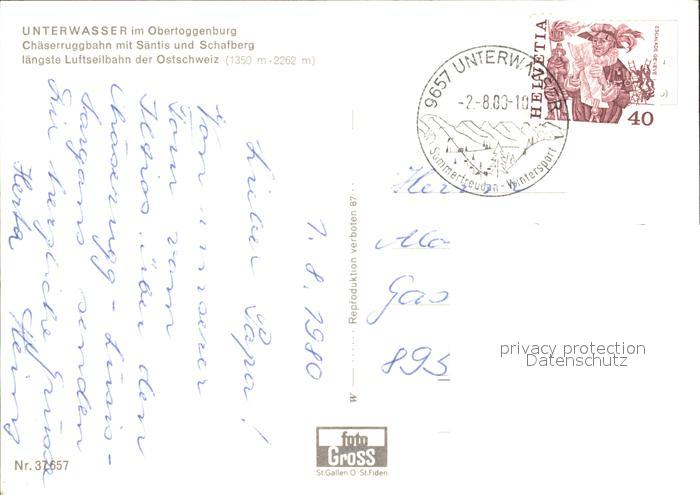 UNTERWASSER im Obertoggenburg
Chäserruggbahn mit Säntis und Schafberg
längste Luftseilbahn der Ostschweiz (1350 m - 2262 m)
9657 UNTERWASSER
-2.-8.80-10
Sommerfreuden - Wintersport
HELVETIA
ESCALADE GENÈVE
40
1.8.1980
Lieber Papa!
Von unserer
Tour vom
Iltios über den
Chäserrugg - Lüsis -
Sargans senden
Dir herzliche Grüsse
Herta Heinz
Herrn
Alo
Gas
895
W Reproduktion verboten 87
foto
GROSS
St.Gallen O St.Fiden
Nr. 37657
privacy protection
Datenschutz